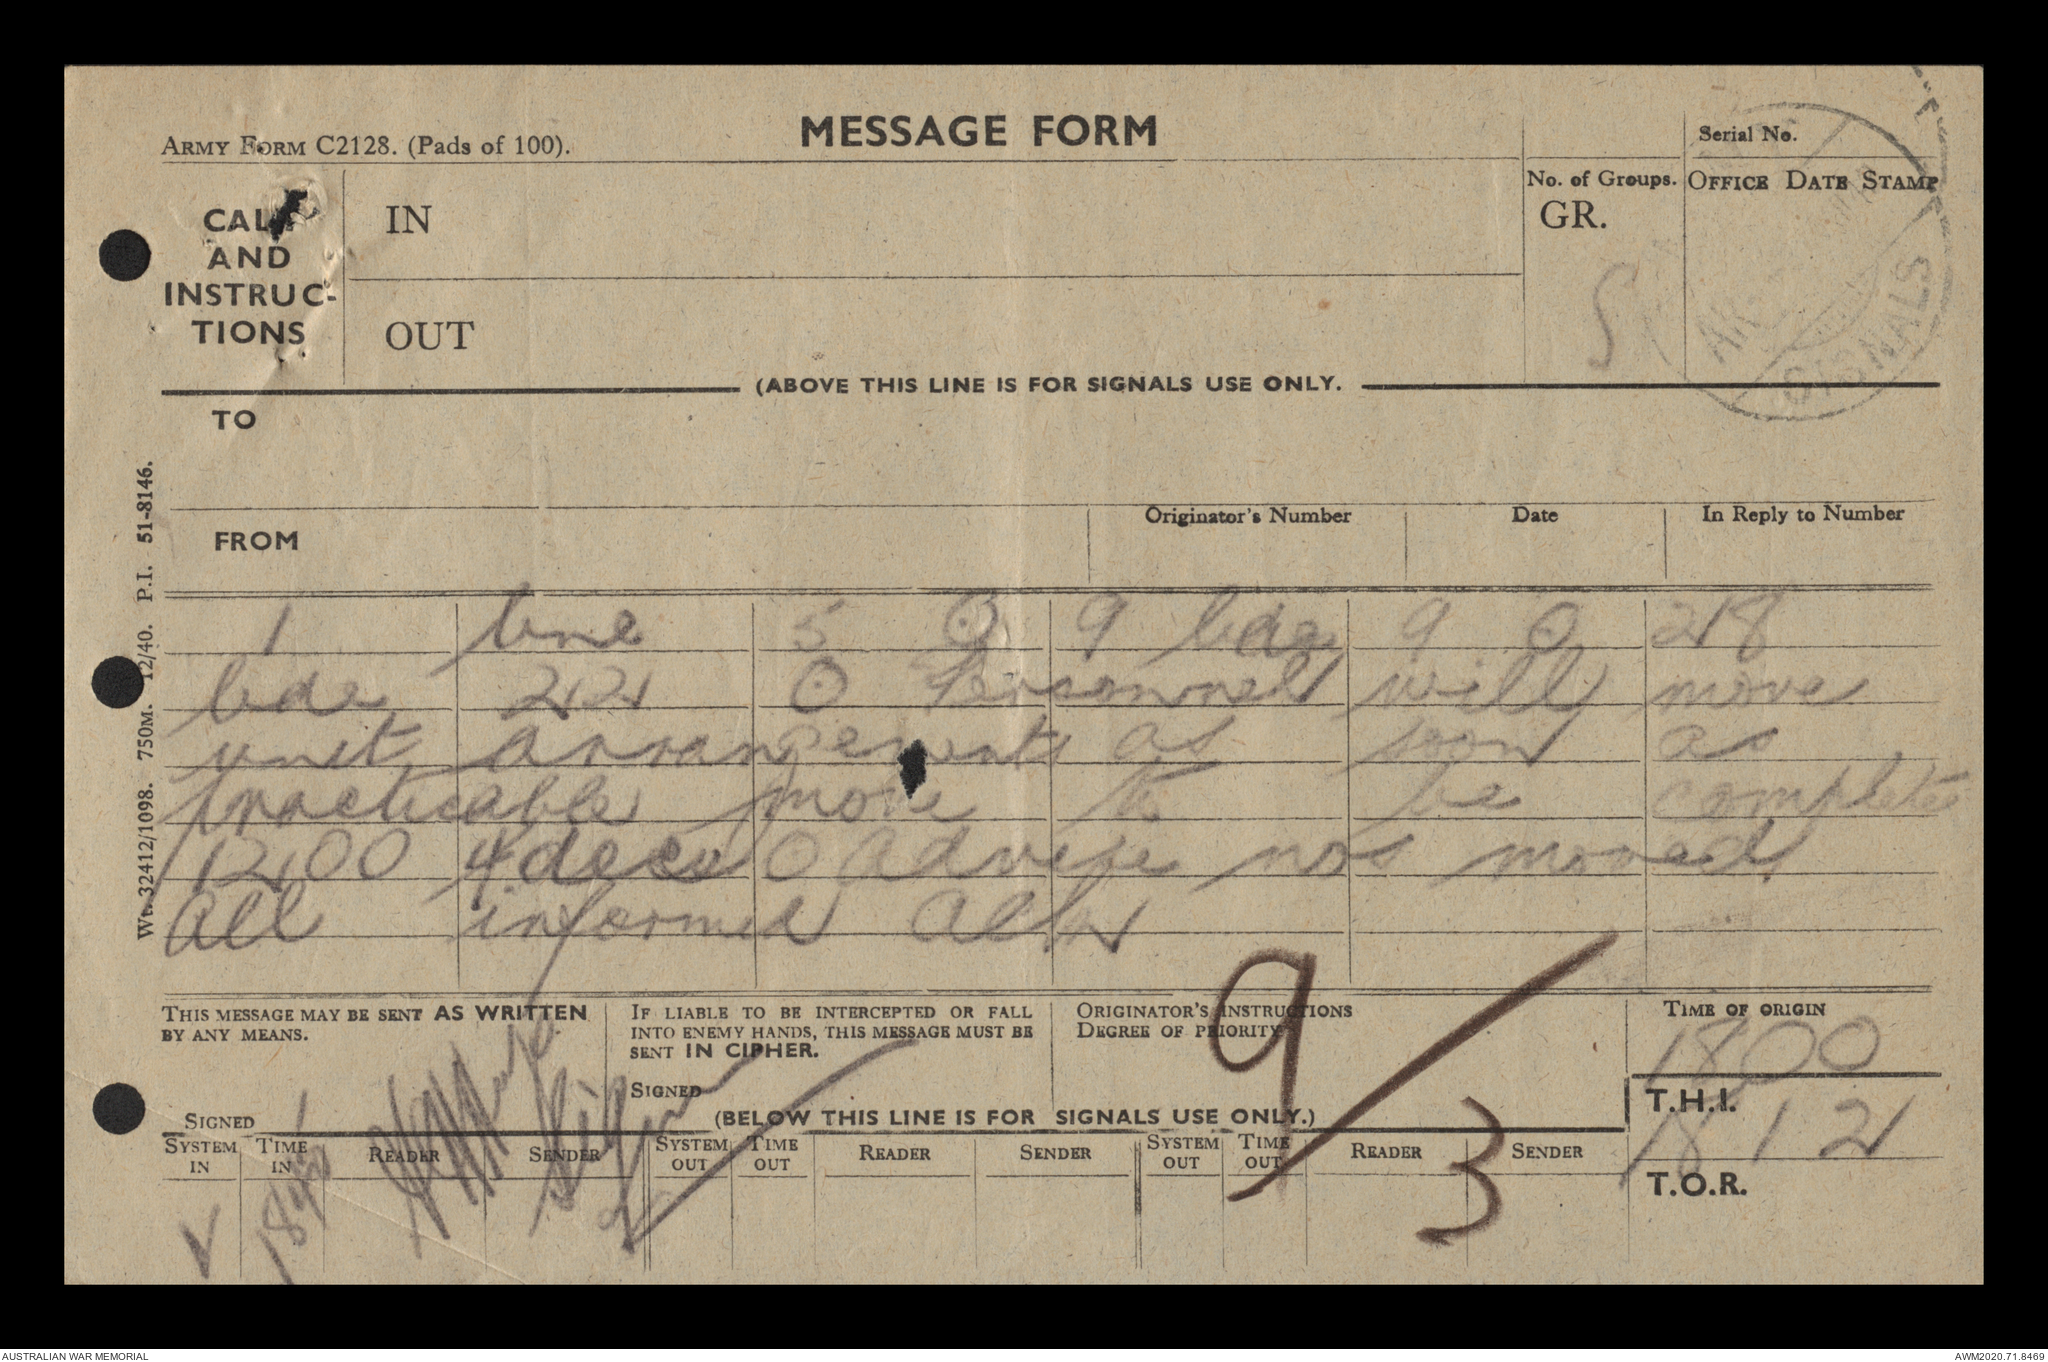 ARMY FORM C2128. (Pads of 100).
MESSAGE FORM
Serial No.
CALL
AND
INSTRUC-
TIONS
IN
OUT
No. of Groups.
GR.
OFFICE DATE STAMP
SIGNALS
(ABOVE THIS LINE IS FOR SIGNALS USE ONLY.
TO
FROM
Originator's Number
Date
In Reply to Number
Wt. 32412/1098. 750M. 12/40. P.I. 51-8146.
1 bne 5 ⊙ 9 bde 9 ⊙ 218
bde 22 ⊙ Personnel will move
unit arrangements as soon as
practicable move to be complete
1200 4 dec ⊙ Advise nos moved
all informed
THIS MESSAGE MAY BE SENT AS WRITTEN
BY ANY MEANS.
SIGNED
IF LIABLE TO BE INTERCEPTED OR FALL
INTO ENEMY HANDS, THIS MESSAGE MUST BE
SENT IN CIPHER.
SIGNED
ORIGINATOR'S INSTRUCTIONS
DEGREE OF PRIORITY
TIME OF ORIGIN
1800
T.H.I.
1812
T.O.R.
(BELOW THIS LINE IS FOR SIGNALS USE ONLY.)
SYSTEM IN
TIME IN
READER
SENDER
SYSTEM OUT
TIME OUT
READER
SENDER
SYSTEM OUT
TIME OUT
READER
SENDER
9/3
AUSTRALIAN WAR MEMORIAL
AWM2020.71.8469